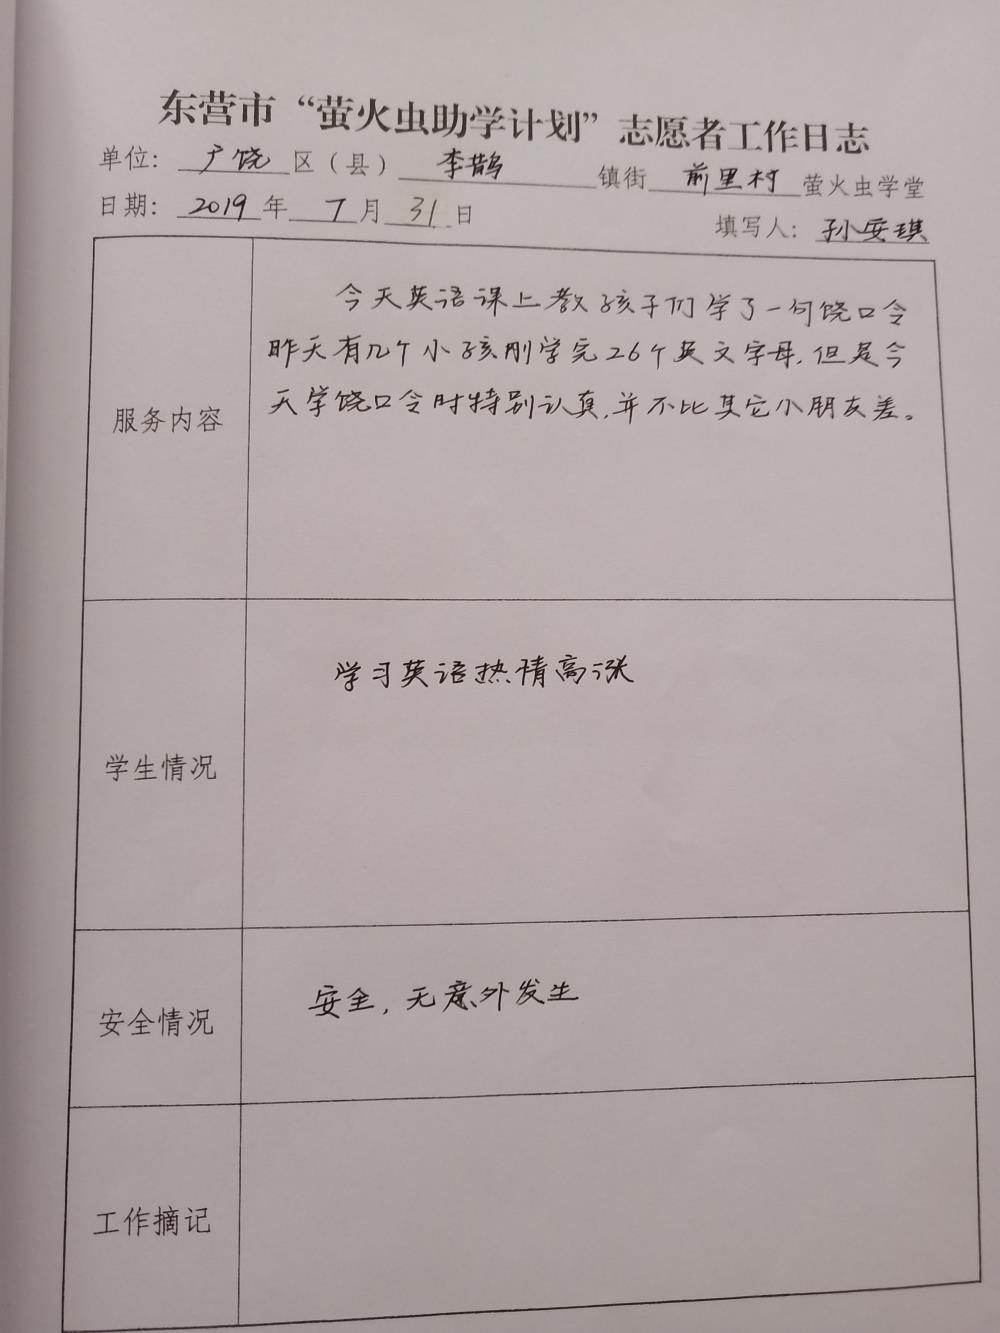 东营市“萤火虫助学计划”志愿者工作日志
单位：广饶区（县）李鹊镇街前里村萤火虫学堂
日期：2019年7月31日 填写人：孙安琪
服务内容
今天英语课上教孩子们学了一句饶口令
昨天有几个小孩刚学完26个英文字母，但是今
天学饶口令时特别认真，并不比其它小朋友差。
学生情况
学习英语热情高涨
安全情况
安全，无意外发生
工作摘记